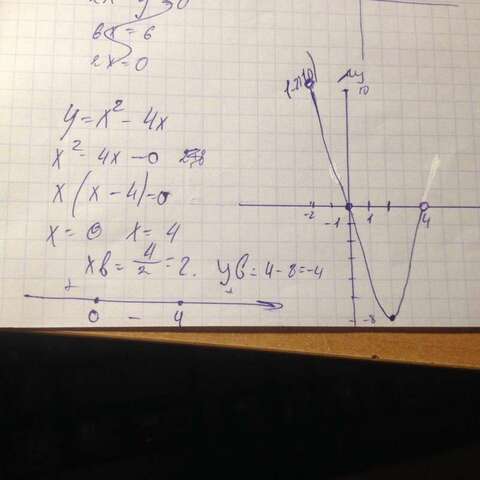 6x = 6
2x = 0
y = x² - 4x
x² - 4x - 0
x(x - 4) = 0
x = 0 x = 4
xв = 4/2 = 2. yв = 4 - 8 = -4
+ - +
0 4
y
10
-2 -1 1 4
-8